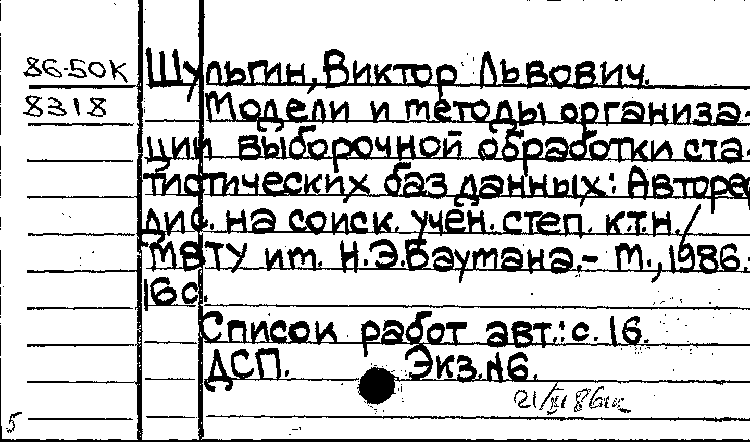 86-50К Шульгин, Виктор Львович.
8318 Модели и методы организа-
ции выборочной обработки ста-
тистических баз данных: Авторер
дис. на соиск. учен. степ. к.т.н. /
МВТУ им. Н.Э.Баумана.- М., 1986.-
16 с.
Список работ авт.: с. 16.
ДСП. Экз.№6.
5